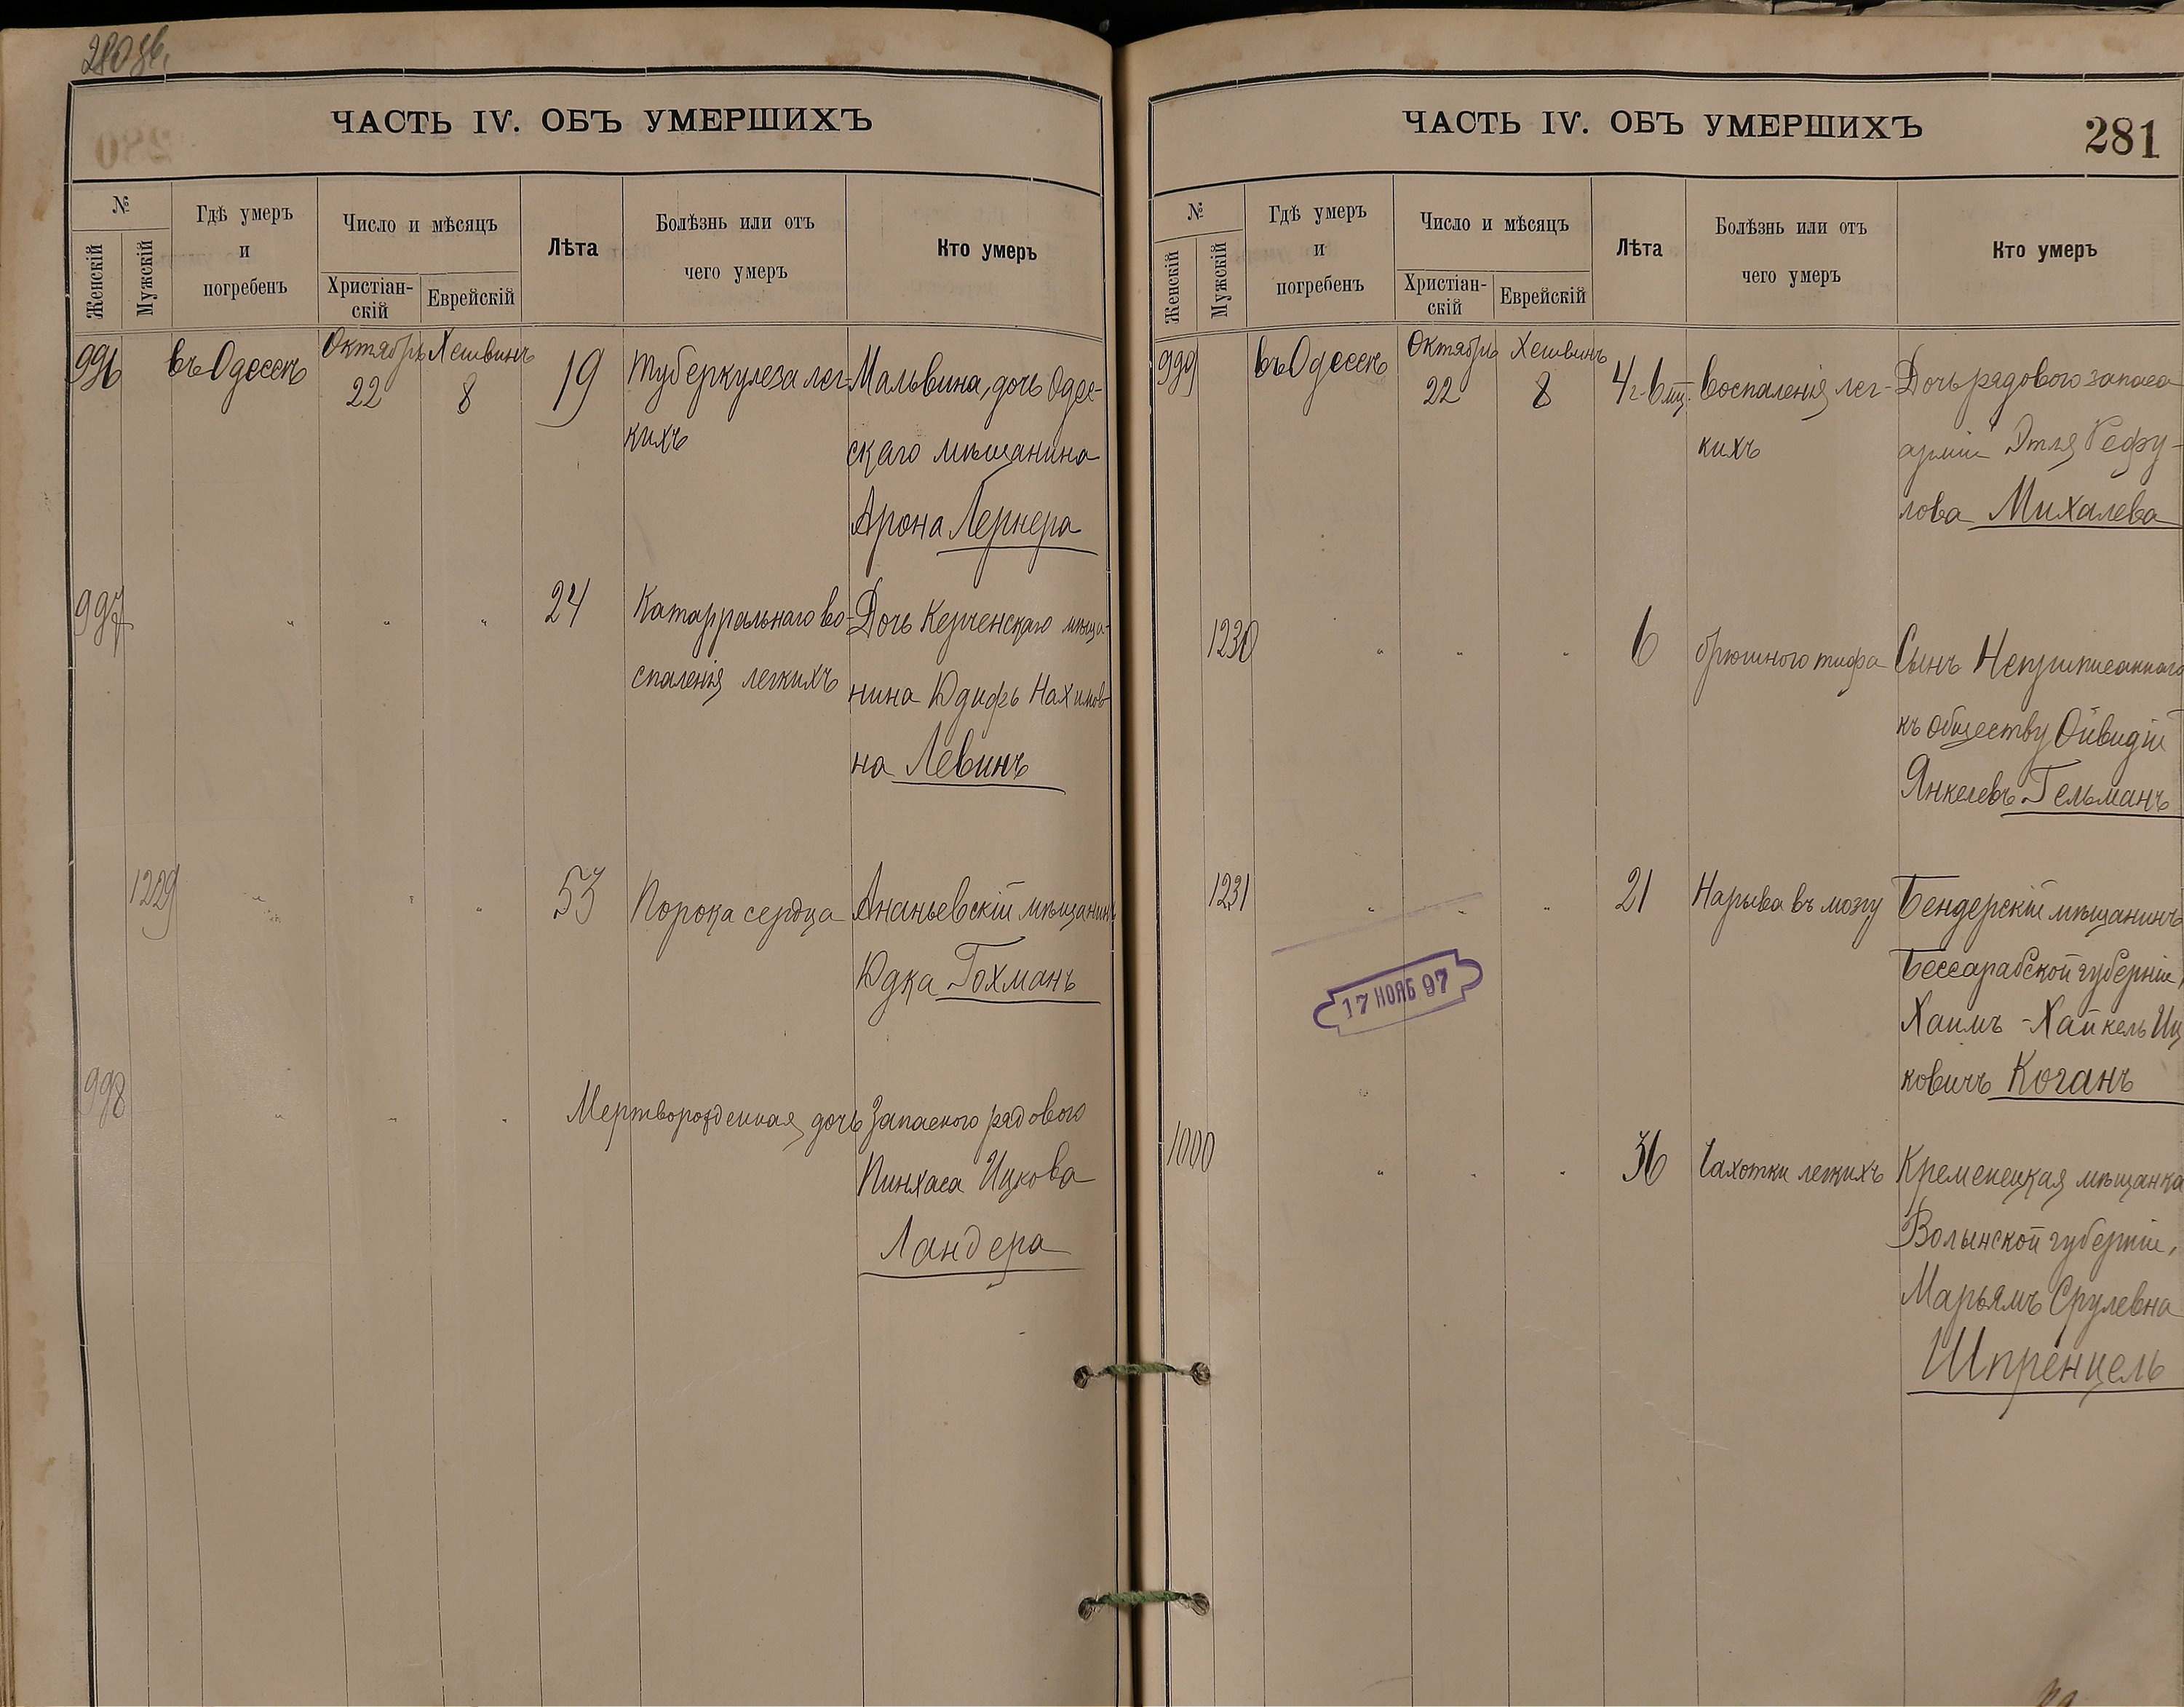 280 зв.
ЧАСТЬ IV. ОБЪ УМЕРШИХЪ
№
Женскій
Мужскій
Гдѣ умеръ
и
погребенъ
Число и мѣсяцъ
Христіан-
скій
Еврейскій
Лѣта
Болѣзнь или отъ
чего умеръ
Кто умеръ
996 въ Одессѣ Октябрь Хешвинъ 19 Туберкулеза лег- Мальвина, дочь Одес-
22 8 кихъ скаго мѣщанина
Арона Лернера
997 " " " 24 Катарральнаго во- Дочь Керченскаго мѣща-
спаленія легкихъ нина Юдифь Нахимов-
на Левинъ
1229 " " " 53 Порока сердца Ананьевскій мѣщанинъ
Юдка Гохманъ
998 " " " Мертворожденная дочь Запаснаго рядового
Пинхаса Ицкова
Ландера
ЧАСТЬ IV. ОБЪ УМЕРШИХЪ
281
№
Женскій
Мужскій
Гдѣ умеръ
и
погребенъ
Число и мѣсяцъ
Христіан-
скій
Еврейскій
Лѣта
Болѣзнь или отъ
чего умеръ
Кто умеръ
999 въ Одессѣ Октябрь Хешвинъ 4 г. 6 мц. Воспаленія лег- Дочь рядового запаса
22 8 кихъ арміи Этля Рефу-
лова Михалева
1230 " " " 6 брюшного тифа Сынъ Неприписаннаго
къ обществу Ойвидій
Янкелевъ Гельманъ
1231 " " " 21 Нарыва въ мозгу Бендерскій мѣщанинъ
Бессарабской губерніи,
Хаимъ-Хайкель Иц
ковичъ Коганъ
17 НОЯБ 97
1000 " " " 36 Чахотки легкихъ Кременецкая мѣщанка
Волынской губерніи,
Марьямъ Срулевна
Шпренцель